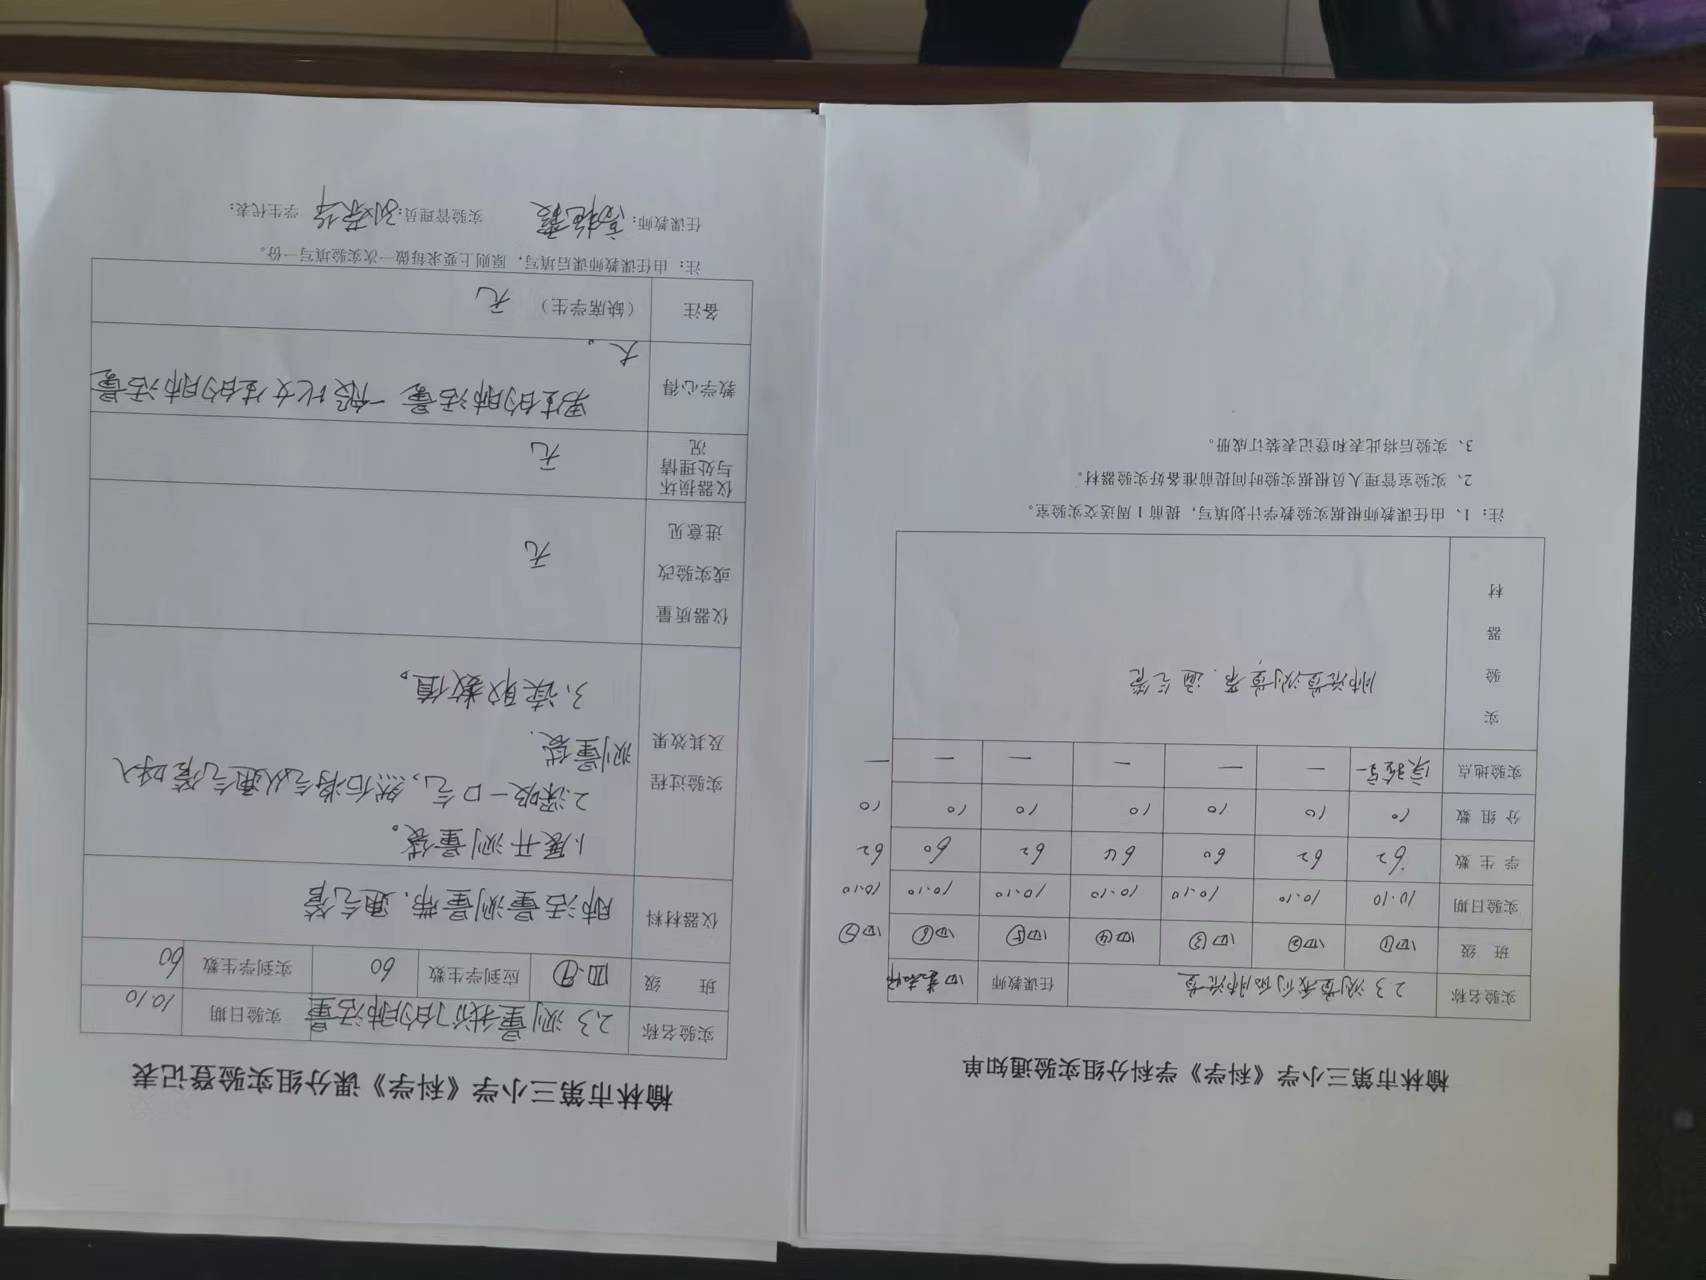 榆林市第三小学《科学》学科分组实验通知单
实验名称 2.3 测量我们的肺活量 任课教师
班 级 四① 四② 四③ 四④ 四⑤ 四⑥ 四⑦
实验日期 10.10 10.10 10.10 10.10 10.10 10.10 10.10
学生数 62 62 60 64 62 60 62
分组数 10 10 10 10 10 10 10
实验地点 实验室一 一 一 一 一 一 一
实
验
器
材
肺活量测量带、通气管
注：1、由任课教师根据实验教学计划填写，提前1周送交实验室。
2、实验室管理人员根据实验时间提前准备好实验器材。
3、实验后将此表和登记表装订成册。
榆林市第三小学《科学》课分组实验登记表
实验名称 2.3 测量我们的肺活量 实验日期 10.10
班 级 应到学生数 60 实到学生数 60
仪器材料 肺活量测量带、通气管
实验过程
及其效果
1、展开测量袋。
2.深吸一口气，然后将气从通气管吹入
测量袋.
3、读取数值。
仪器质量
或实验改
进意见
无
仪器损坏
与处理情
况
无
教学心得
男生的肺活量一般比女生的肺活量
大。
备注 （缺席学生） 无
注：由任课教师课后填写，原则上要求每做一次实验填写一份。
任课教师： 实验管理员： 学生代表：